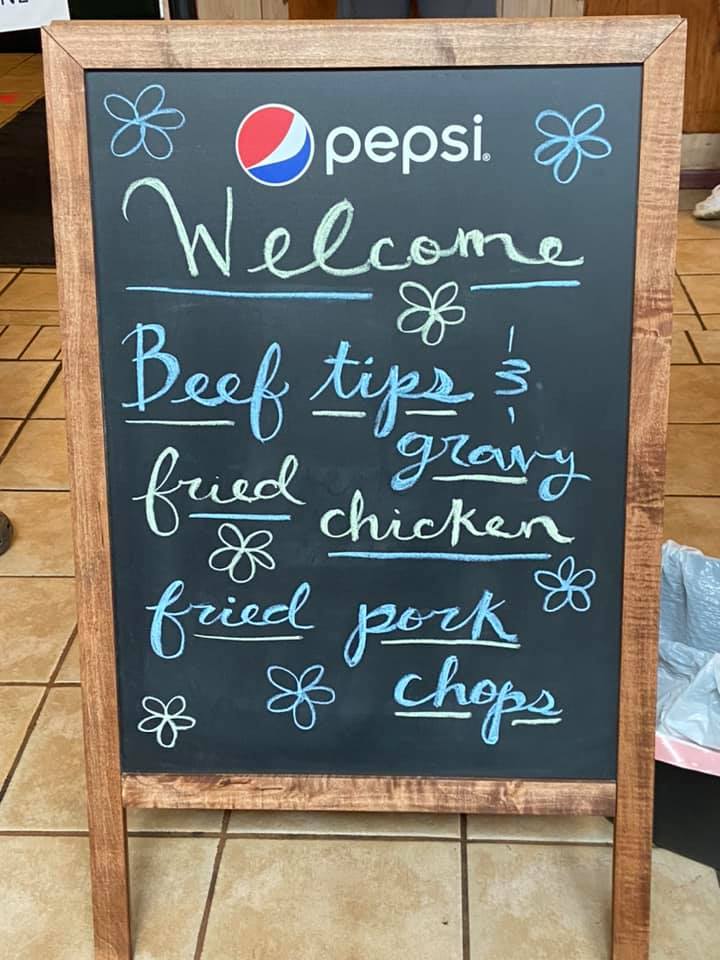 pepsi
Welcome
Beef tips &
gravy
fried chicken
fried pork
chops